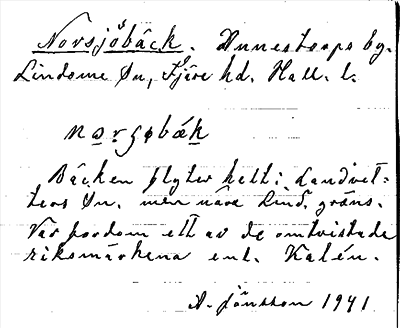 Norsjöbäck. Annestorps by.
Lindome Sn, Fjäre hd. Hall. l.
norʃøbæk
Bäcken flyter helt i Landvet-
ters Sn. men nära Lind. gräns.
Var fordom ett av de omtvistade
riksmärkena enl. Kalén.
A. Jönsson 1941